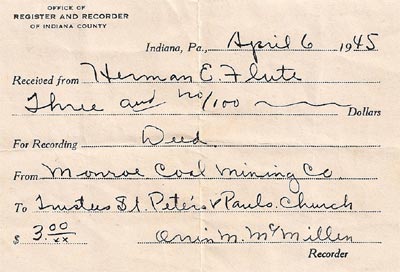 OFFICE OF
REGISTER AND RECORDER
OF INDIANA COUNTY
Indiana, Pa., April 6 1945
Received from Herman E. Flute
Three and no/100 Dollars
For Recording Deed
From Monroe Coal Mining Co.
To Trustees St. Peters & Pauls. Church
$ 3.00/xx Orvin M. McMillen
Recorder